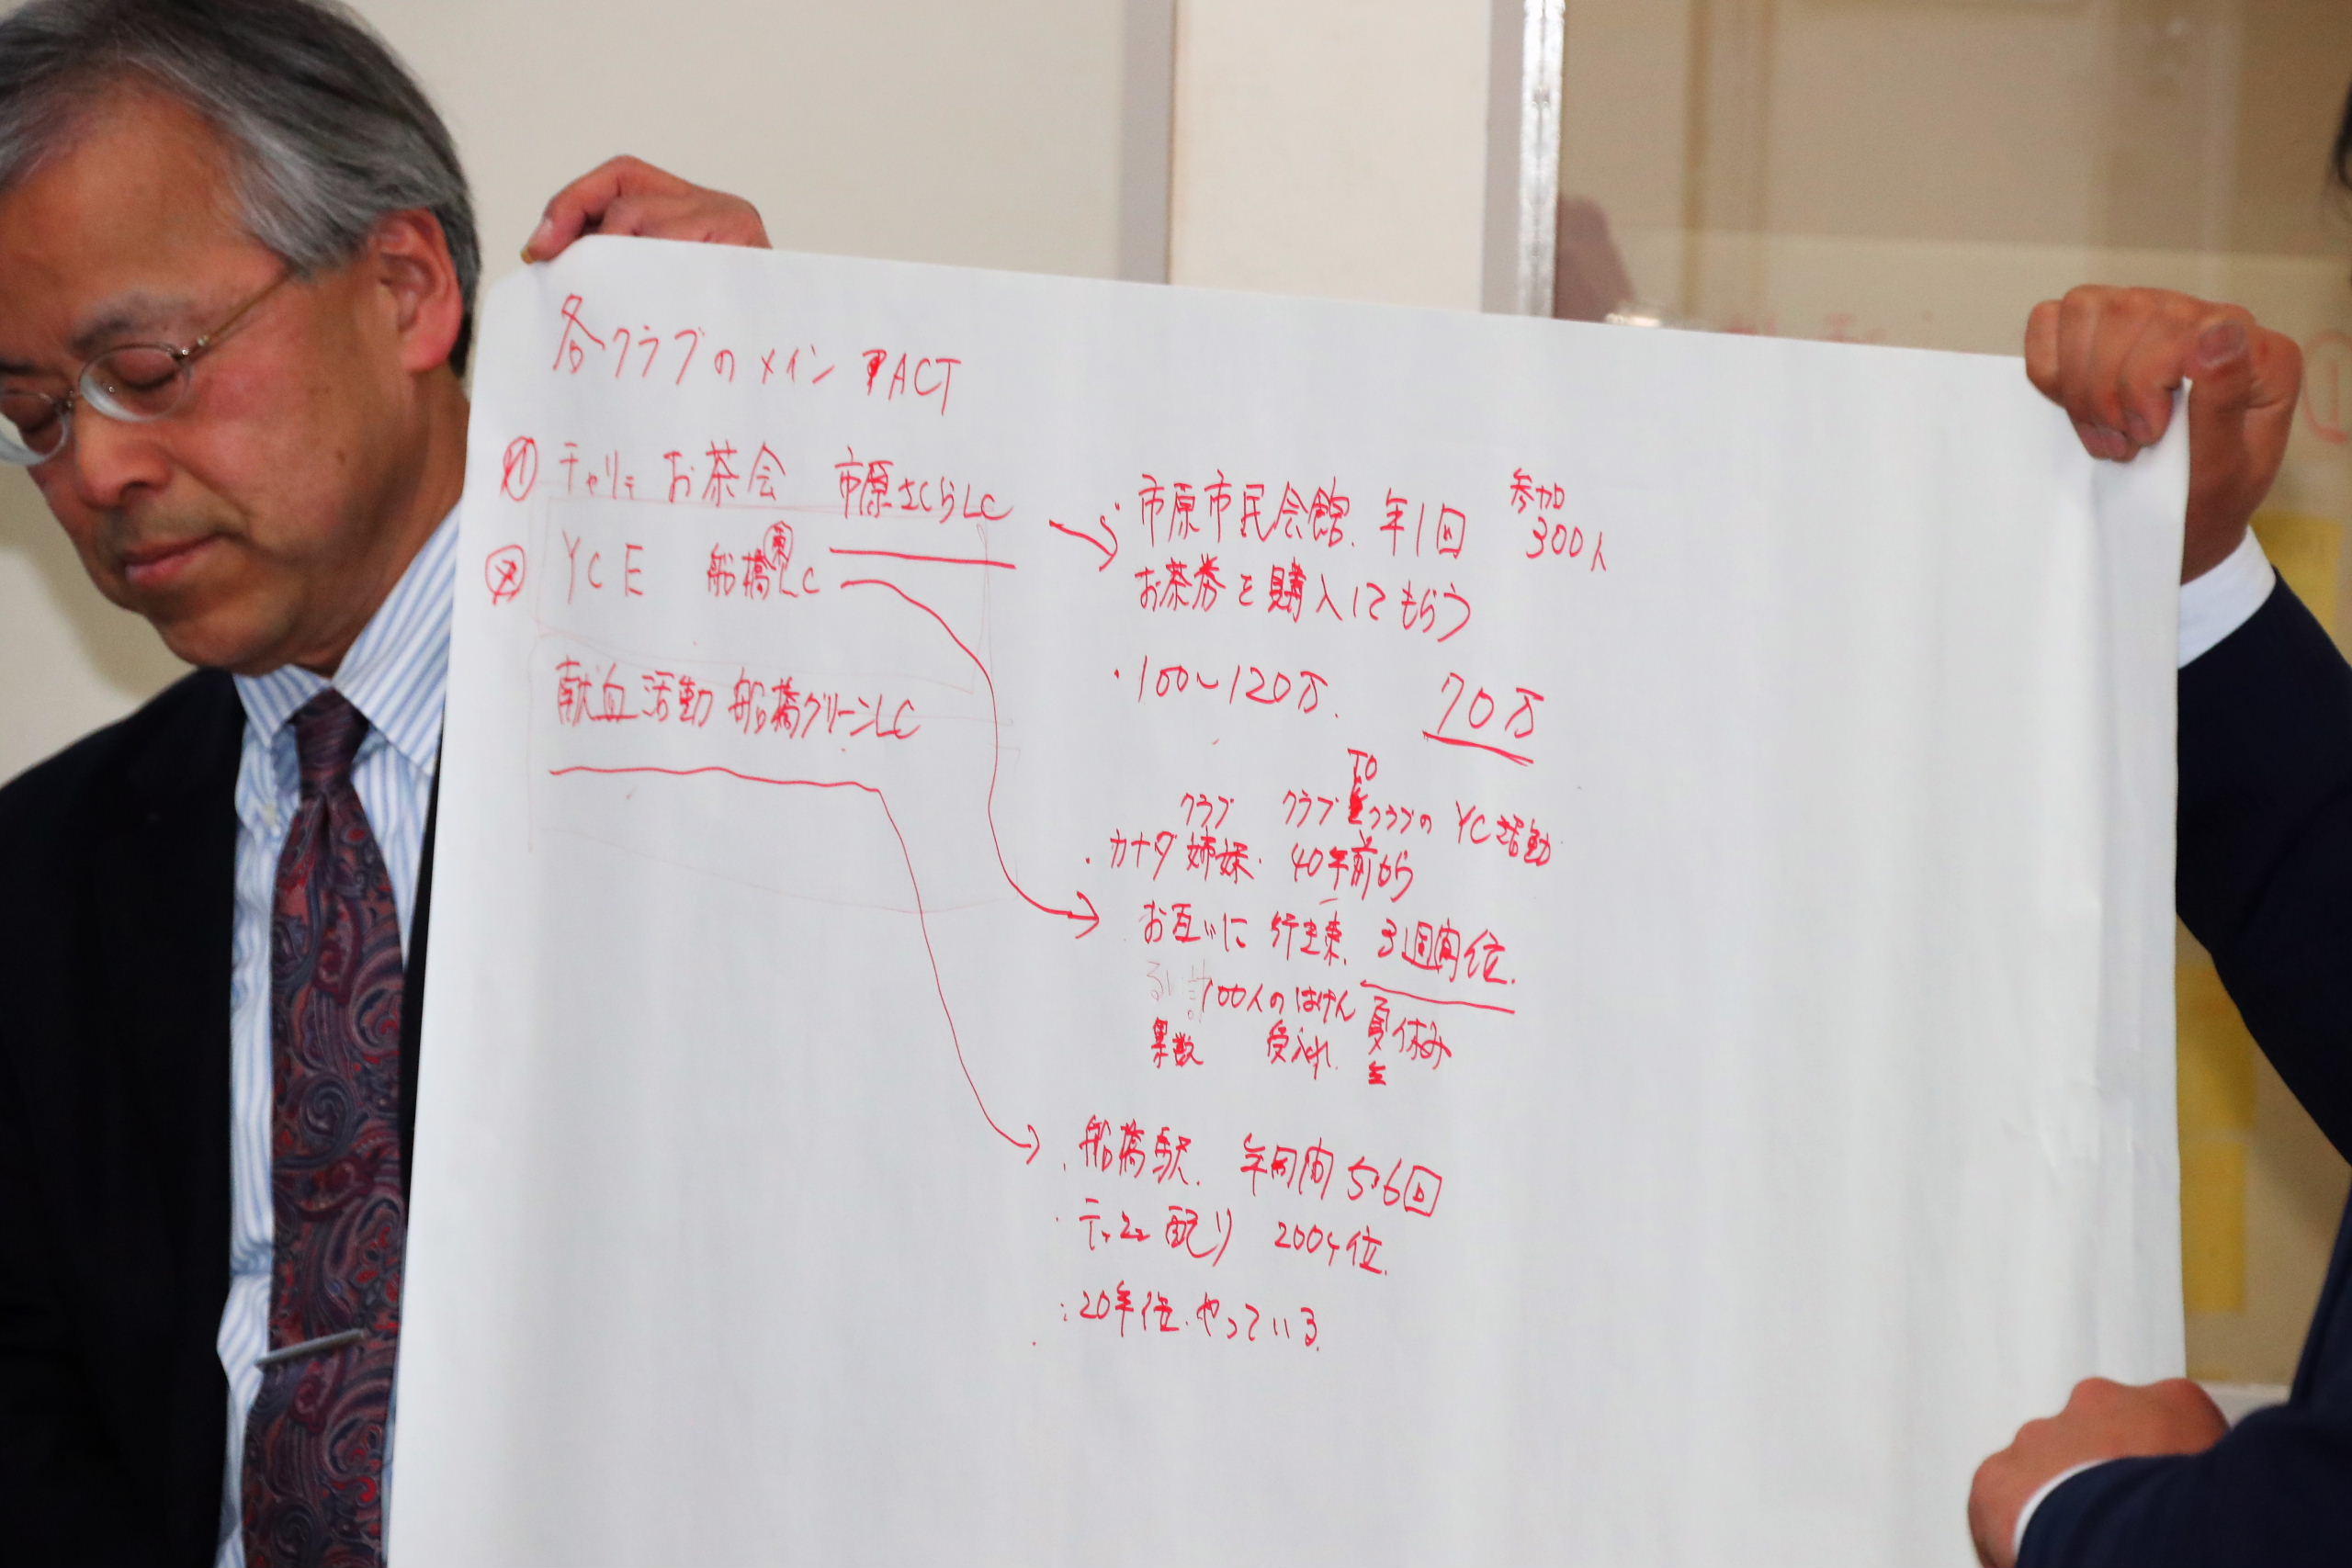 各クラブのメイン ACT
チャリティ お茶会 市原さくらLC
YCE 船橋東LC
献血活動 船橋グリーンLC
・市原市民会館. 年1回 参加 300人
お茶券を購入してもらう
・100〜120万. 70万
クラブ クラブTOクラブの YC活動
・カナダ姉妹. 40年前から
お互いに 行き来. 3週間位.
100人のはけん 夏休み
受入れ
・船橋駅. 年間 5・6回
・ティッシュ配り 200ケ位.
・20年位. やっている.